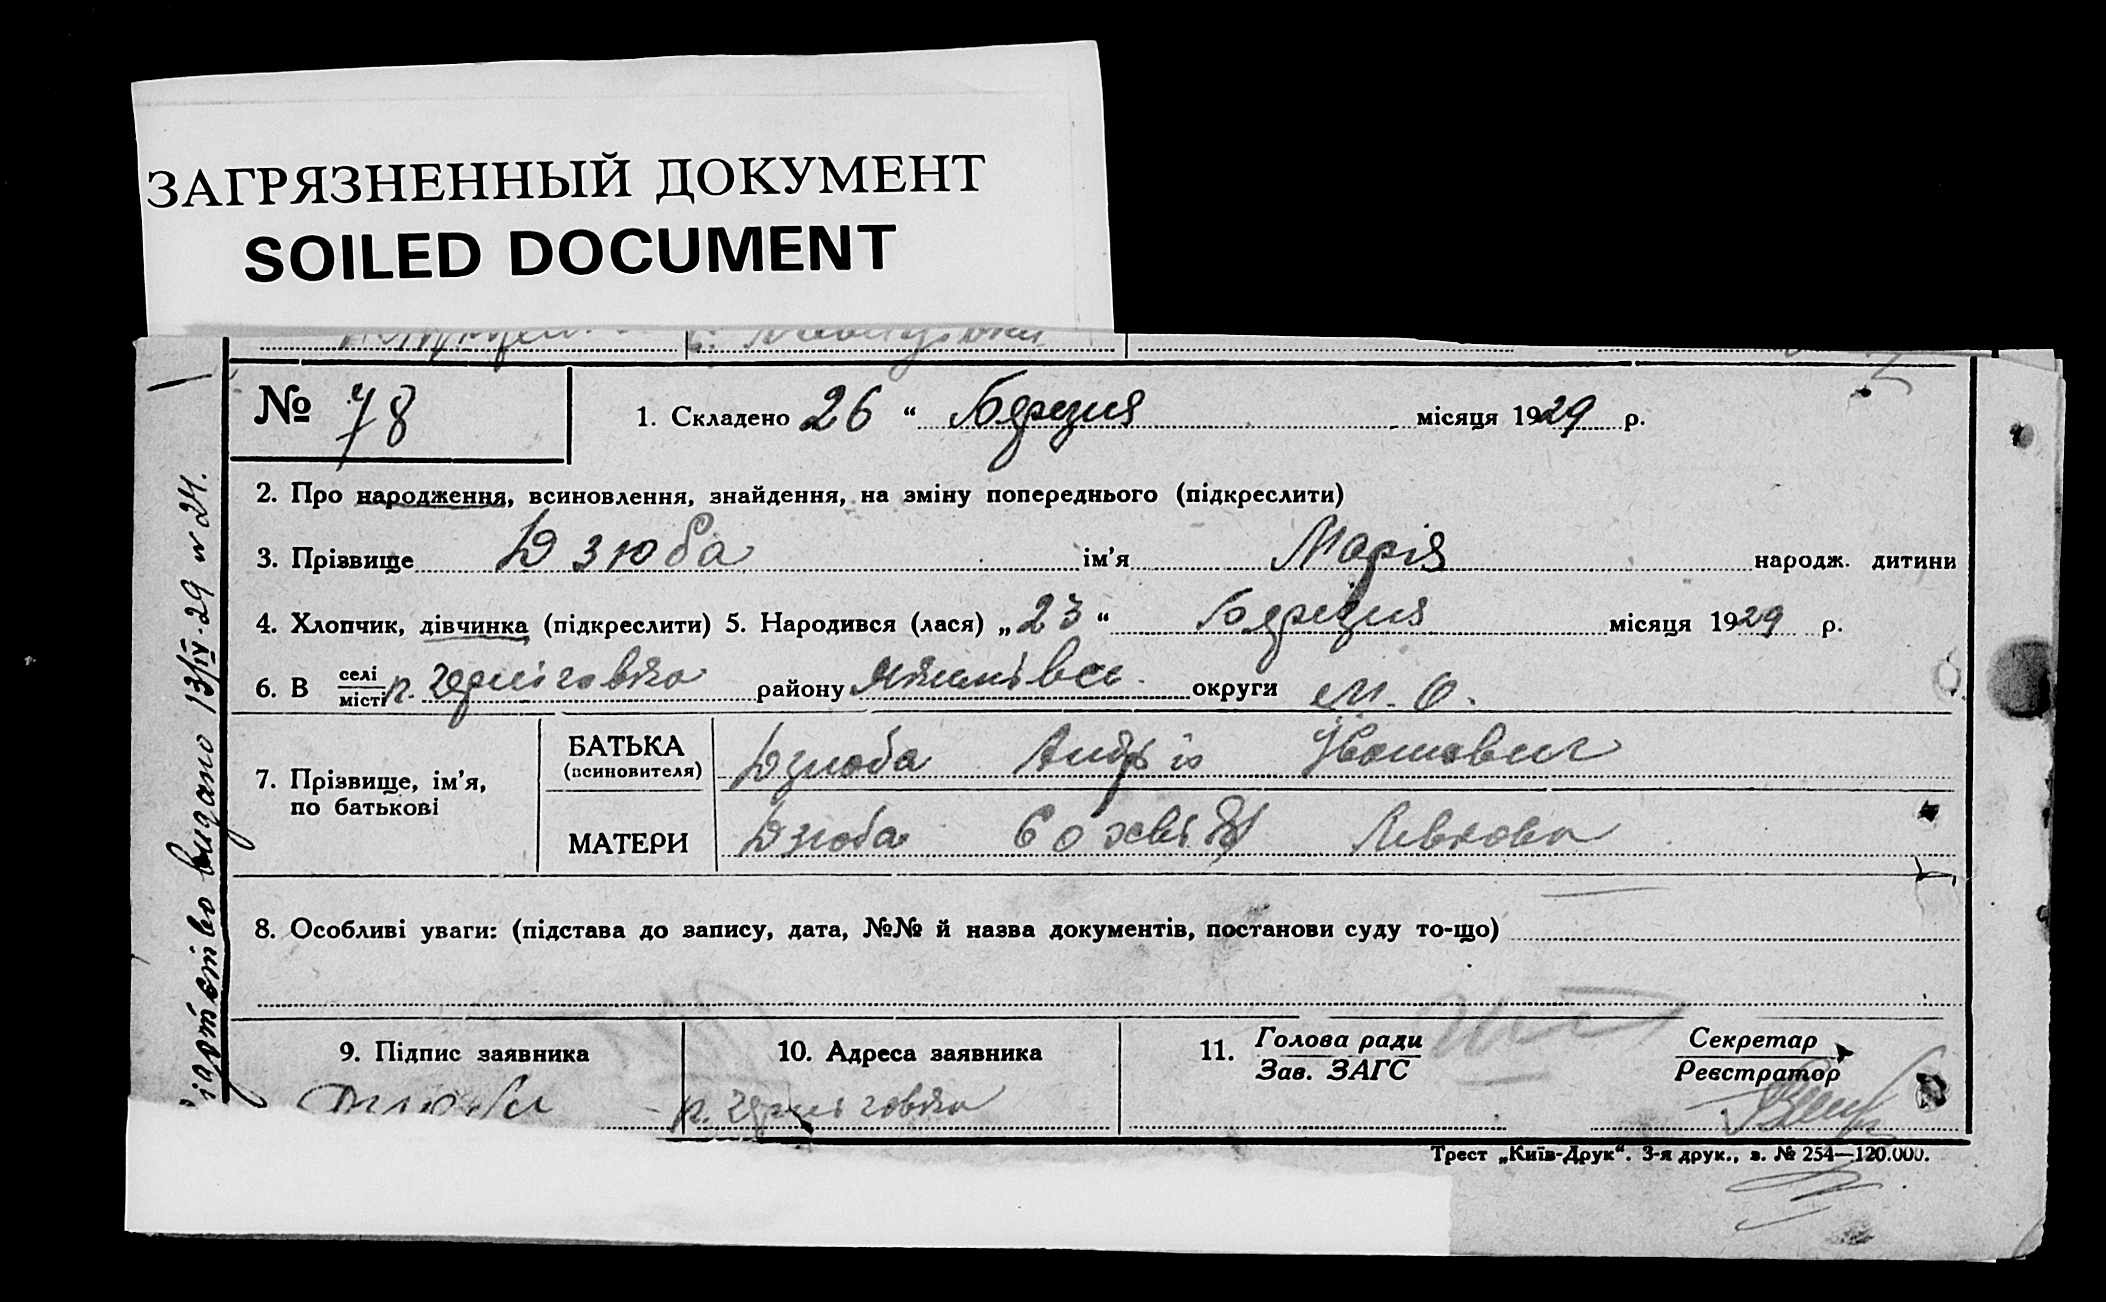 ЗАГРЯЗНЕННЫЙ ДОКУМЕНТ
SOILED DOCUMENT
№ 78
1. Складено 26 “ Березня місяця 1929 р.
2. Про народження, всиновлення, знайдення, на зміну попереднього (підкреслити)
3. Прізвище Дзюба ім’я Марія народж. дитини
4. Хлопчик, дівчинка (підкреслити) 5. Народився (лася) „23“ Березня місяця 1929 р.
6. В селі місті р. Черніговка району округи М. О.
7. Прізвище, ім’я, по батькові
БАТЬКА (всиновителя) Дзюба Андрій Іванович
МАТЕРИ Дзюба Левкова
8. Особливі уваги: (підстава до запису, дата, №№ й назва документів, постанови суду то-що)
9. Підпис заявника
10. Адреса заявника
11. Голова ради Зав. ЗАГС
Секретар Реєстратор
р. Черніговка
Трест „Київ-Друк“. 3-я друк., з. № 254—120.000.
видано 13/IV-29